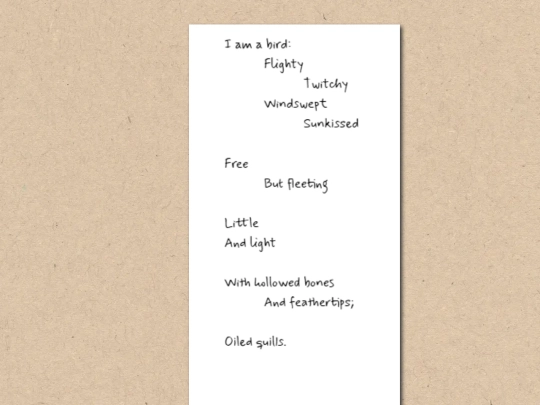 I am a bird:
Flighty
Twitchy
Windswept
Sunkissed
Free
But fleeting
Little
And light
With hollowed bones
And feathertips;
Oiled quills.